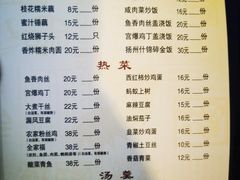 桂花糯米藕 8元 份
蜜汁锤藕 38元 份
红烧狮子头 12元 只
香炸糯米肉圆 20元 份
咸肉菜炒饭 16元 份
鱼香肉丝盖浇饭 16元 份
宫爆鸡丁盖浇饭 16元 份
扬州什锦碎金饭 30元 份
热菜
鱼香肉丝 20元 份
宫爆鸡丁 20元 份
大煮干丝 22元 份
漏风豆腐 22元 份
农家粉丝鸡 38元 份
全家福 38元 份
糖菜青鱼 38元 份
西红柿炒鸡蛋 16元 份
蚂蚁上树 16元 份
麻辣豆腐 12元 份
油焖茄子 16元 份
韭菜炒鸡蛋 16元 份
青椒土豆丝 12元 份
香菇青菜 12元 份
汤羹